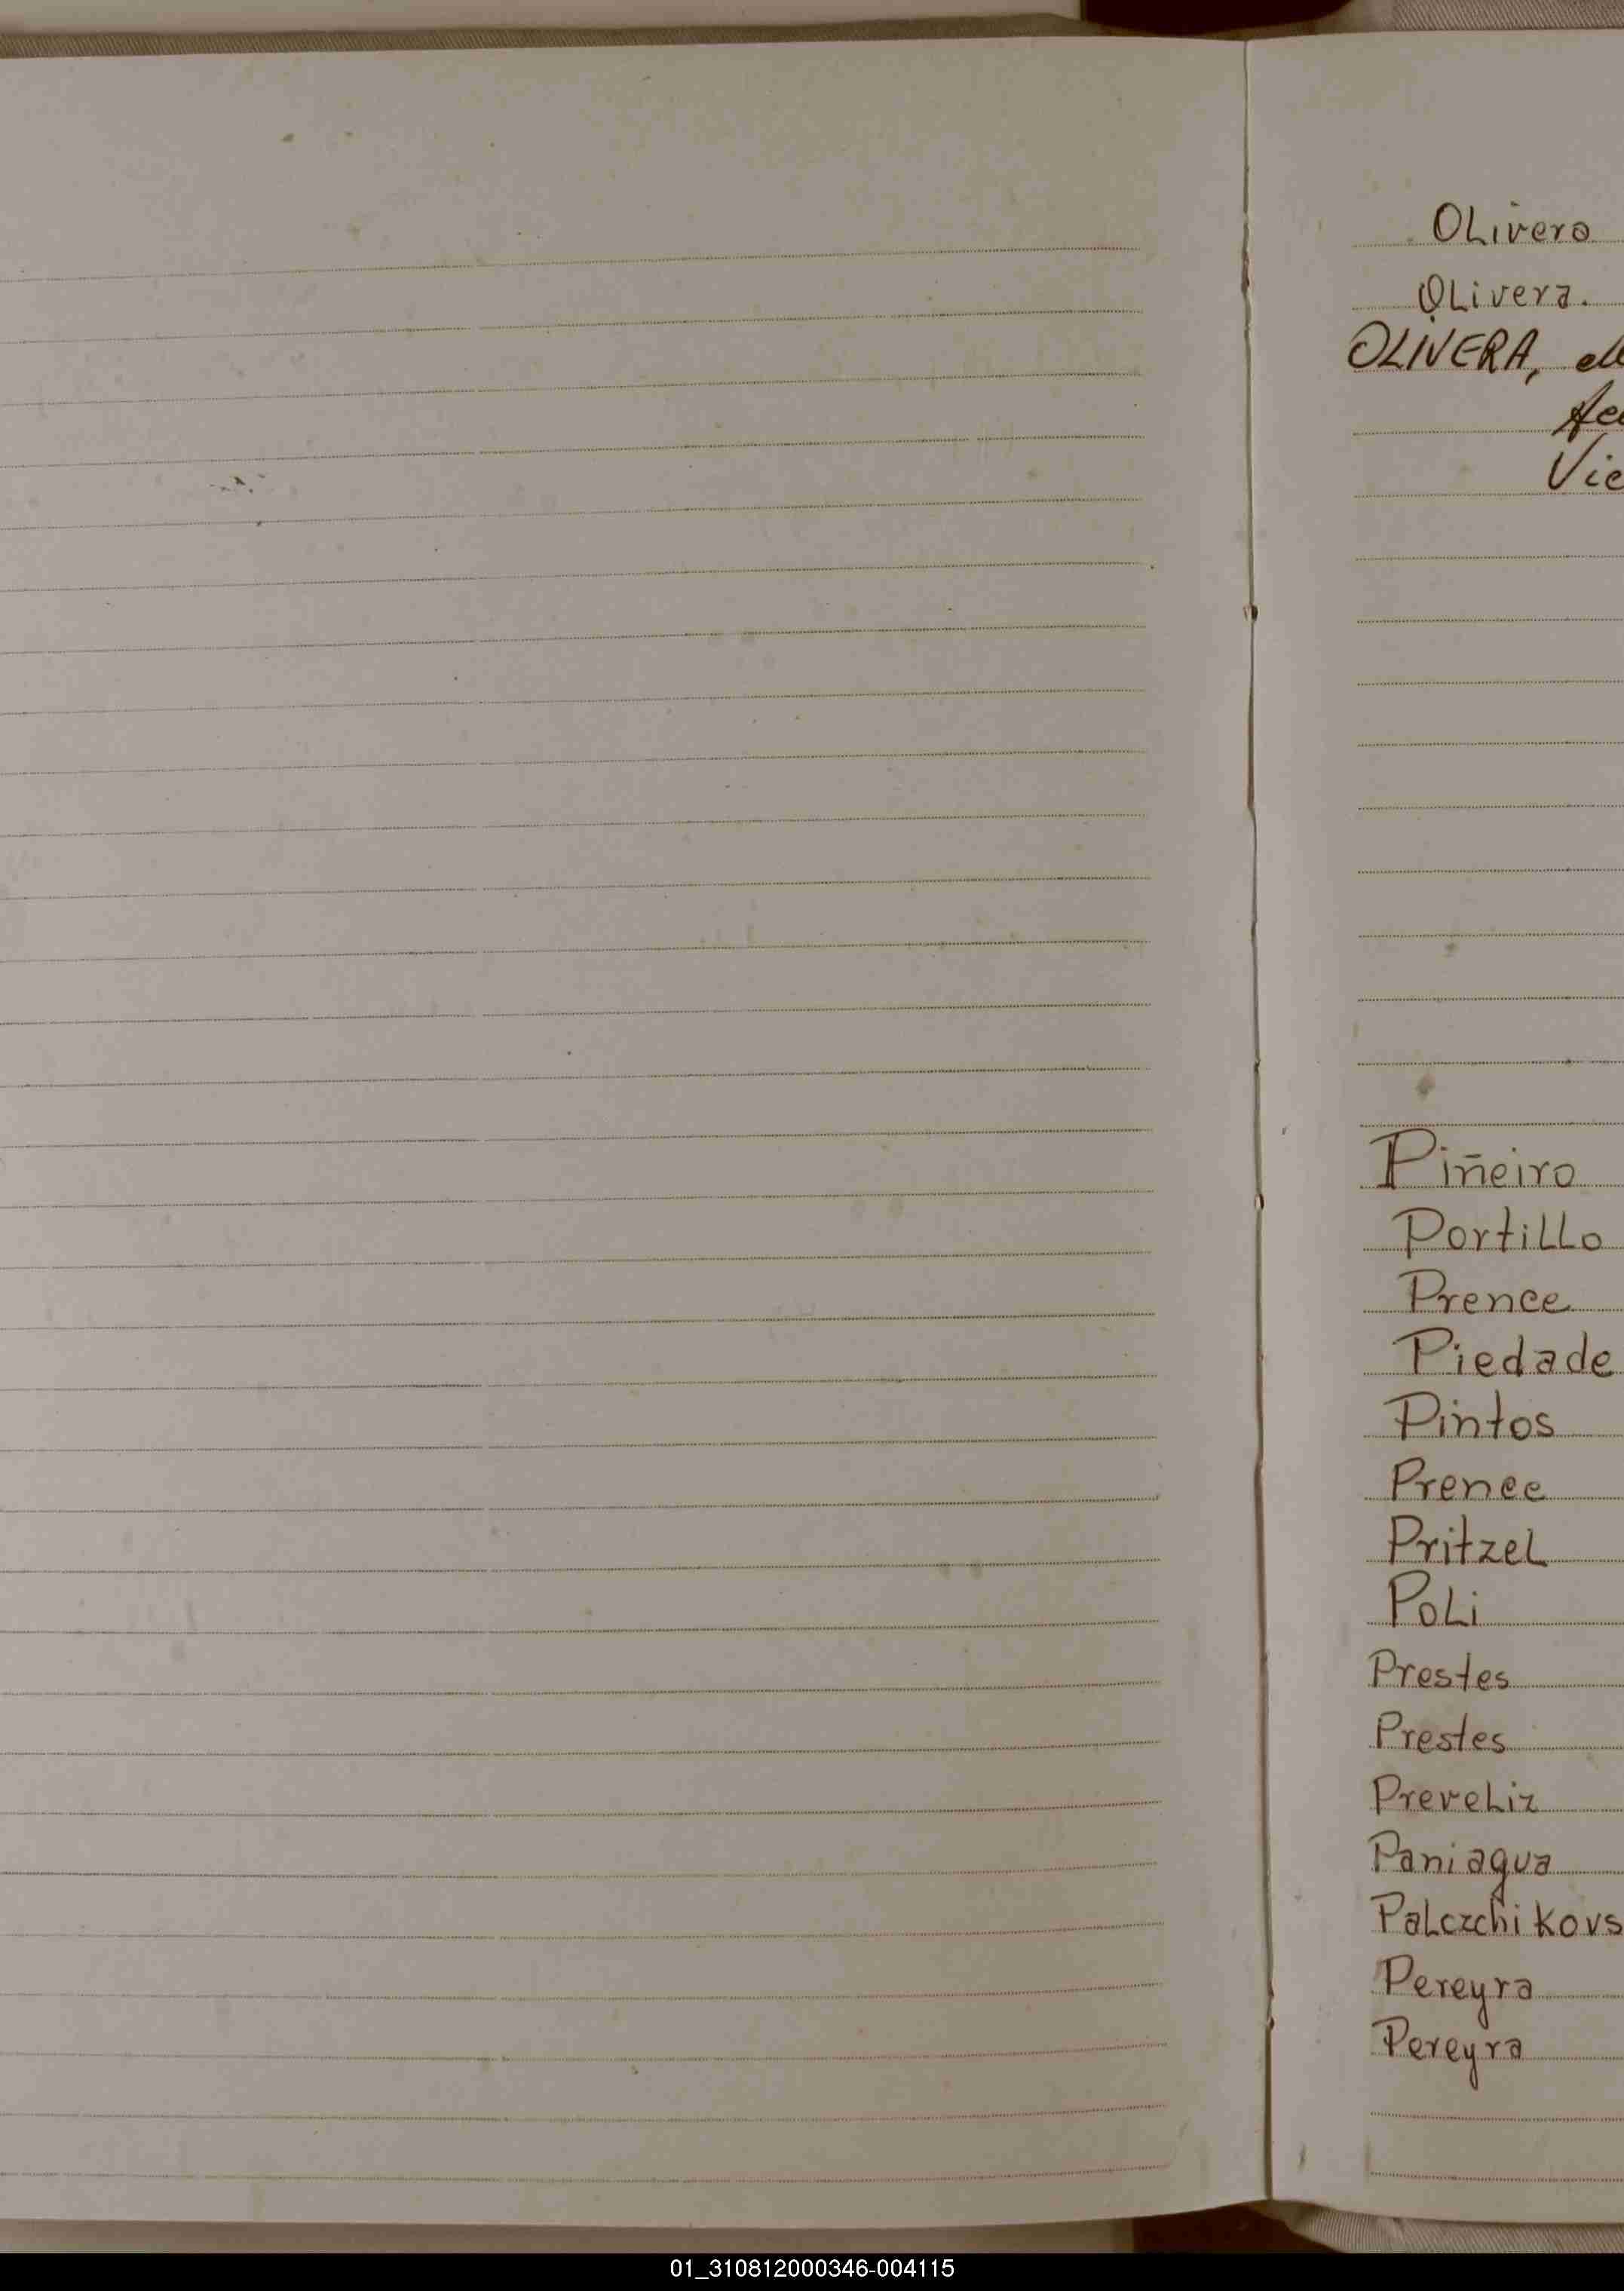 OLivero
OLivera.
OLIVERA,
Piñeiro
PortiLLo
Prence
Piedade
Pintos
Prence
PritzeL
PoLi
Prestes
Prestes
PreveLiz
Paniagua
PaLczchikovs
Pereyra
Pereyra
01_310812000346-004115